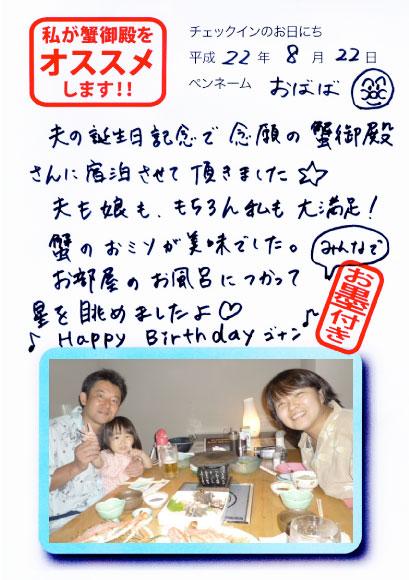 私が蟹御殿を
オススメ
します!!
チェックインのお日にち
平成 22 年 8 月 22 日
ペンネーム おばば
夫の誕生日記念で 念願の 蟹御殿
さんに宿泊させて頂きました☆
夫も娘も、もちろん私も大満足!
蟹のおミソが美味でした。
みんなで
お部屋のお風呂につかって
星を眺めましたよ♡
♪ Happy Birthday ゴナン ♪
お墨付き